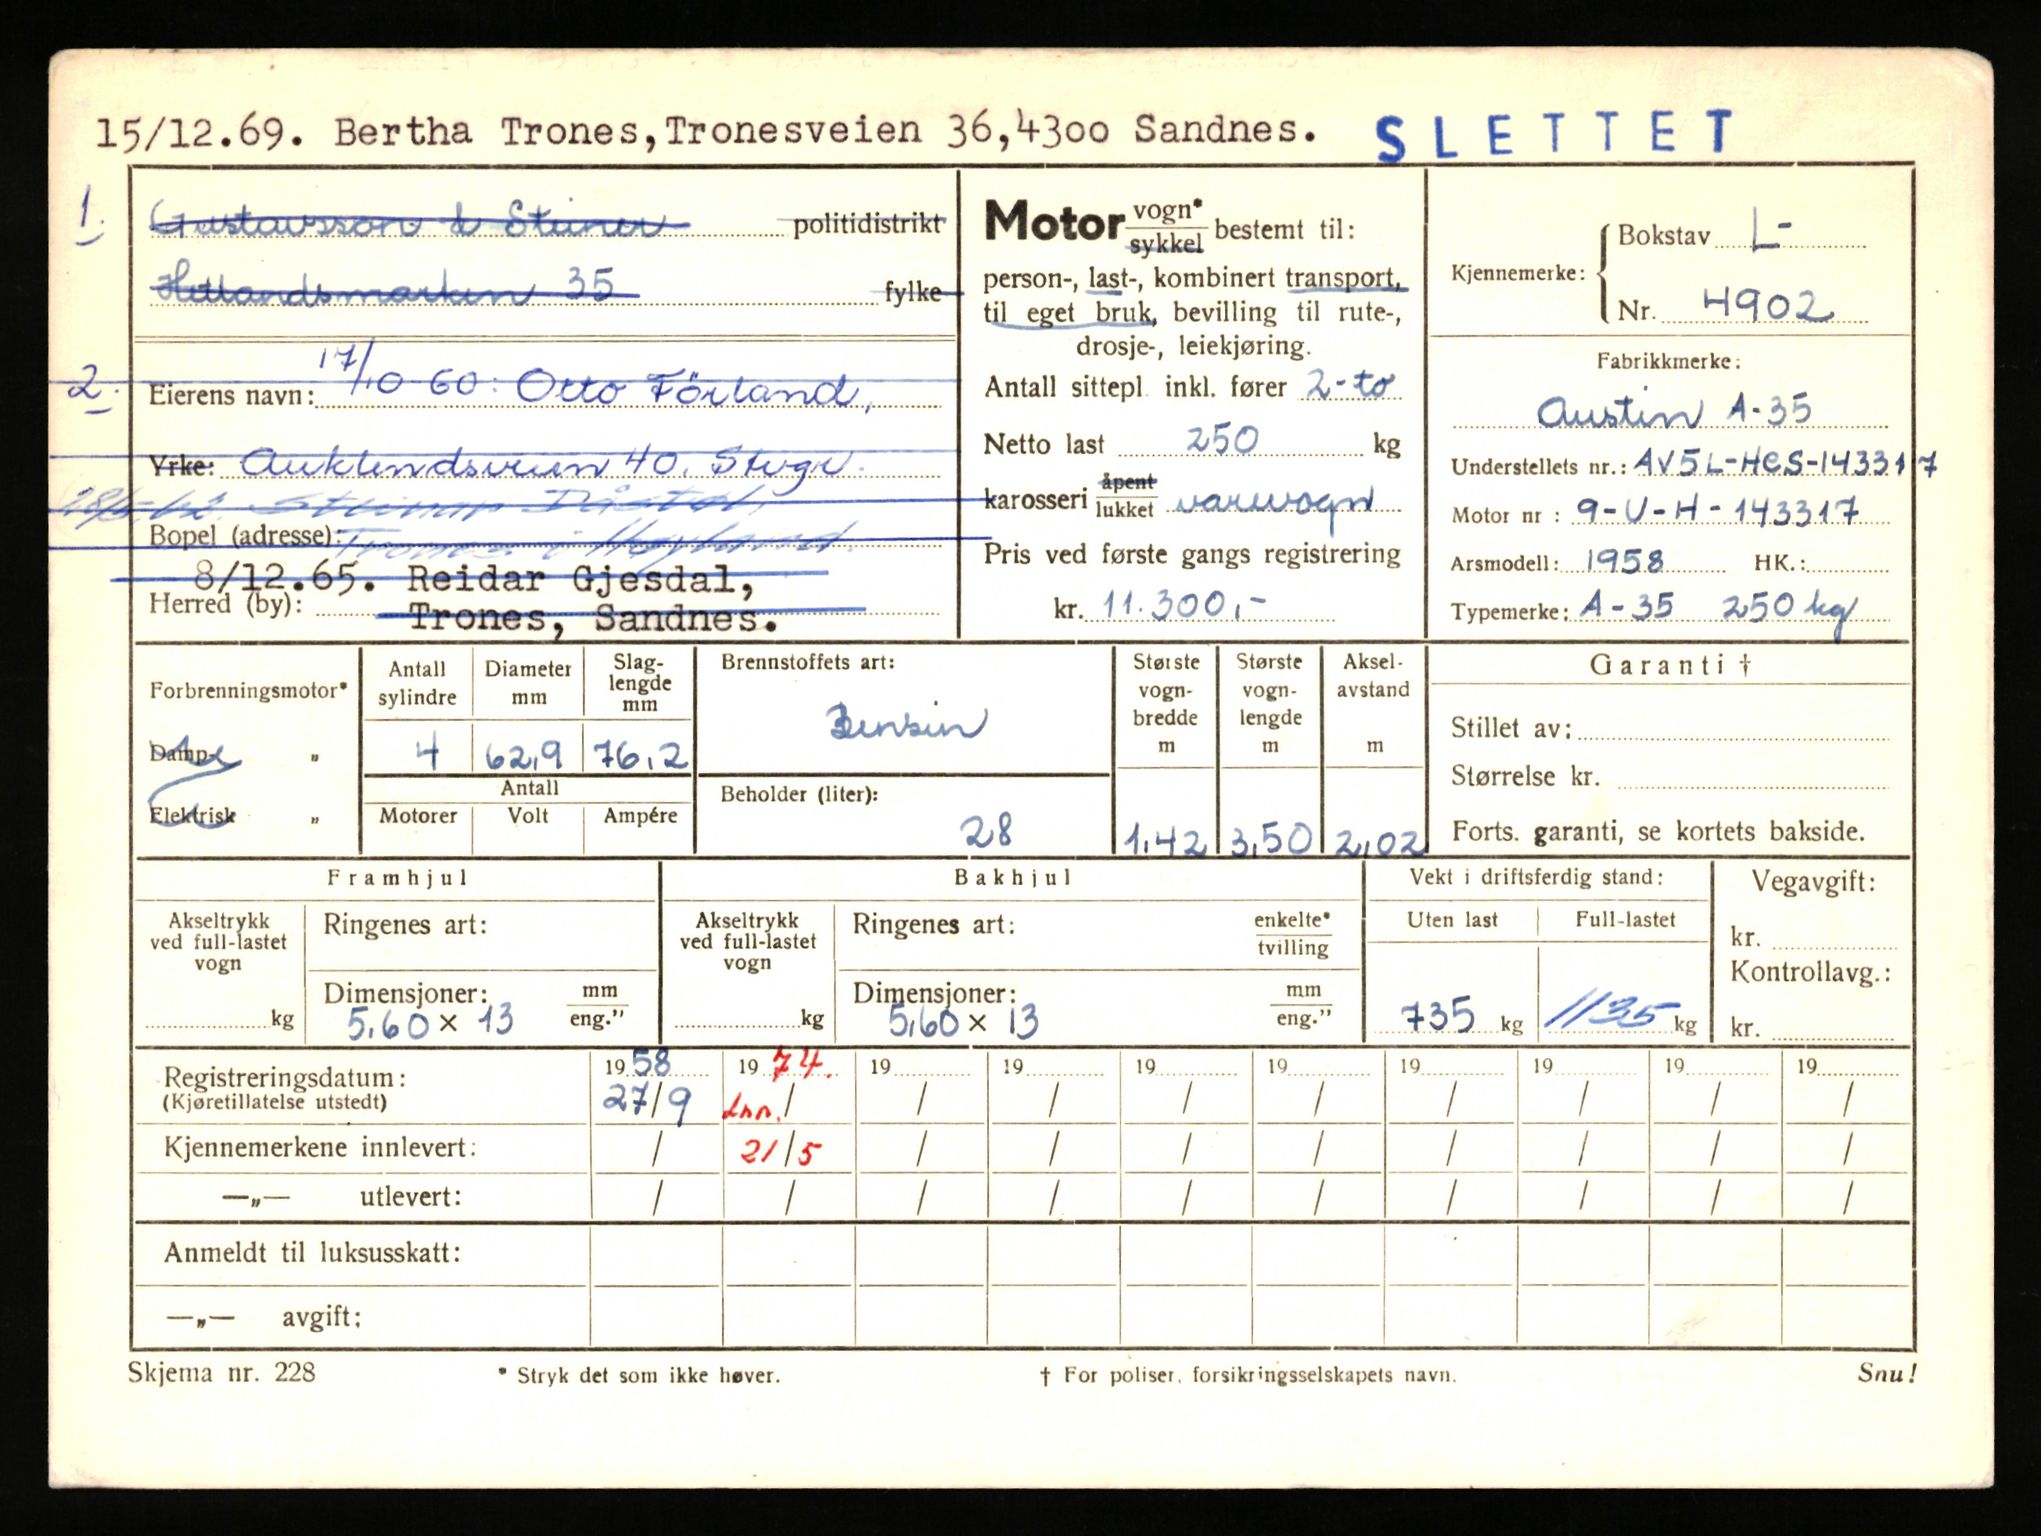 15/12.69. Bertha Trones,Tronesveien 36,4300 Sandnes. SLETTET
1. Gustavsson & Steiner politidistrikt
Hetlandsmarken 35 fylke
2. Eierens navn: 17/10-60: Otto Förland,
Yrke: Auklendsveien 40, Stvgr.
Bopel (adresse):
8/12.65. Reidar Gjesdal,
Herred (by): Trones, Sandnes.
Motor vogn* sykkel bestemt til:
person-, last-, kombinert transport,
til eget bruk, bevilling til rute-,
drosje-, leiekjøring.
Antall sittepl. inkl. fører 2-to
Netto last 250 kg
karosseri åpent lukket varevogn
Pris ved første gangs registrering
kr. 11.300,-
Kjennemerke: Bokstav L-
Nr. 4902
Fabrikkmerke:
Austin A-35
Understellets nr.: AV5L-HCS-143317
Motor nr : 9-U-H-143317
Arsmodell: 1958 HK.:
Typemerke: A-35 250 kg
Forbrenningsmotor*
Damp- „
Elektrisk „
Antall sylindre Diameter mm Slag-lengde mm
4 62,9 76,2
Antall
Motorer Volt Ampére
Brennstoffets art:
Bensin
Beholder (liter):
28
Største vogn-bredde m
1,42
Største vogn-lengde m
3,50
Aksel-avstand m
2,02
Garanti †
Stillet av:
Størrelse kr.
Forts. garanti, se kortets bakside.
Framhjul
Akseltrykk ved full-lastet vogn
kg
Ringenes art:
Dimensjoner: mm eng."
5,60 x 13
Bakhjul
Akseltrykk ved full-lastet vogn
kg
Ringenes art: enkelte* tvilling
Dimensjoner: mm eng."
5,60 x 13
Vekt i driftsferdig stand:
Uten last Full-lastet
735 kg 1135 kg
Vegavgift:
kr.
Kontrollavg.:
kr.
Registreringsdatum: 1958 1974. 19 19 19 19 19 19 19 19
(Kjøretillatelse utstedt) 27/9 Inn. / / / / / / / / /
Kjennemerkene innlevert: / 21/5 / / / / / / / /
—„— utlevert: / / / / / / / / / /
Anmeldt til luksusskatt:
—„— avgift:
Skjema nr. 228 * Stryk det som ikke høver. † For poliser, forsikringsselskapets navn. Snu!